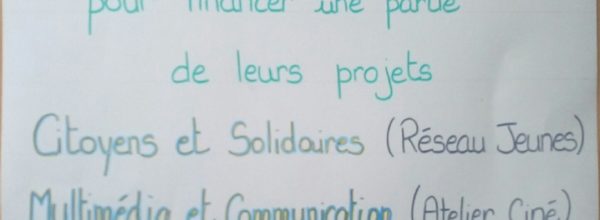 pour financer une partie
de leurs projets
Citoyens et Solidaires (Réseau Jeunes)
Multimédia et Communication (Atelier Ciné)